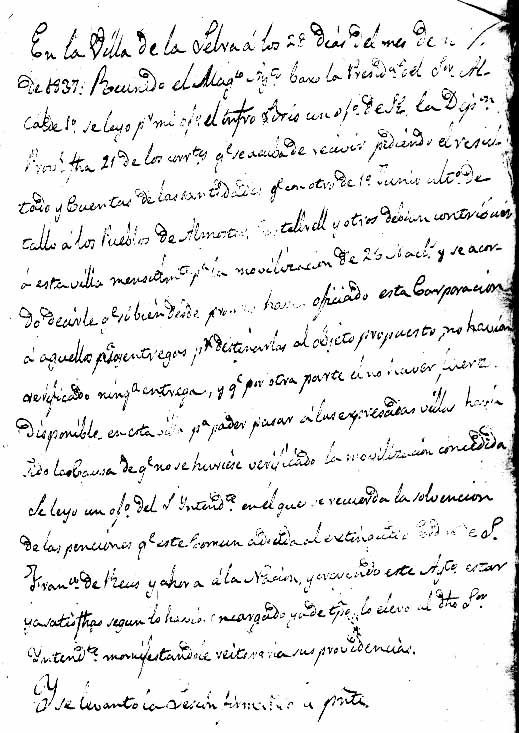 En la Villa de la Selva á los 28 dias del mes de
de 1837: Reunido el Mag.co Ay.to baxo la Presid.a del Sor Al-
calde 1.o se leyo p.r mi el infro Srio un of.o de S.E. la Dip.on
Prov.l fha 21 de los corr.tes q.e se acaba de recivir pidiendo el resul-
tado y Cuentas de las cantidades q.e con otro de 1.o Junio ult.o de-
tallo á los Pueblos de Almoster, Castellvell y otros debian contribuir
á esta villa mensualm.te p.a la movilizacion de 25 Nac.s y se acor-
do decirle q.e si bien desde promto havia oficiado esta Corporacion
á aquellos p.a entregas p.a destinarlas al objeto propuesto, no havian
verificado ning.a entrega, y q.e por otra parte el no haver fuerza
disponible en esta villa p.a poder pasar á las expresadas villas havia
sido la causa de q.e no se huviese verificado la movilizacion concedida
Se leyo un of.o del S.r Intend.te en el que se recuerda la solvencion
de las penciones q.e este Comun adeuda al extinguido de S.n
Fran.co de Reus y ahora á la Nacion, y creyendo este Ayto estar
ya satisfhas segun lo havia encargado ya de tpo, lo elevo al dho Sor
Intend.te manifestandole reiteraria sus providencias.
Y se levantó la sesion firmando el pnte.